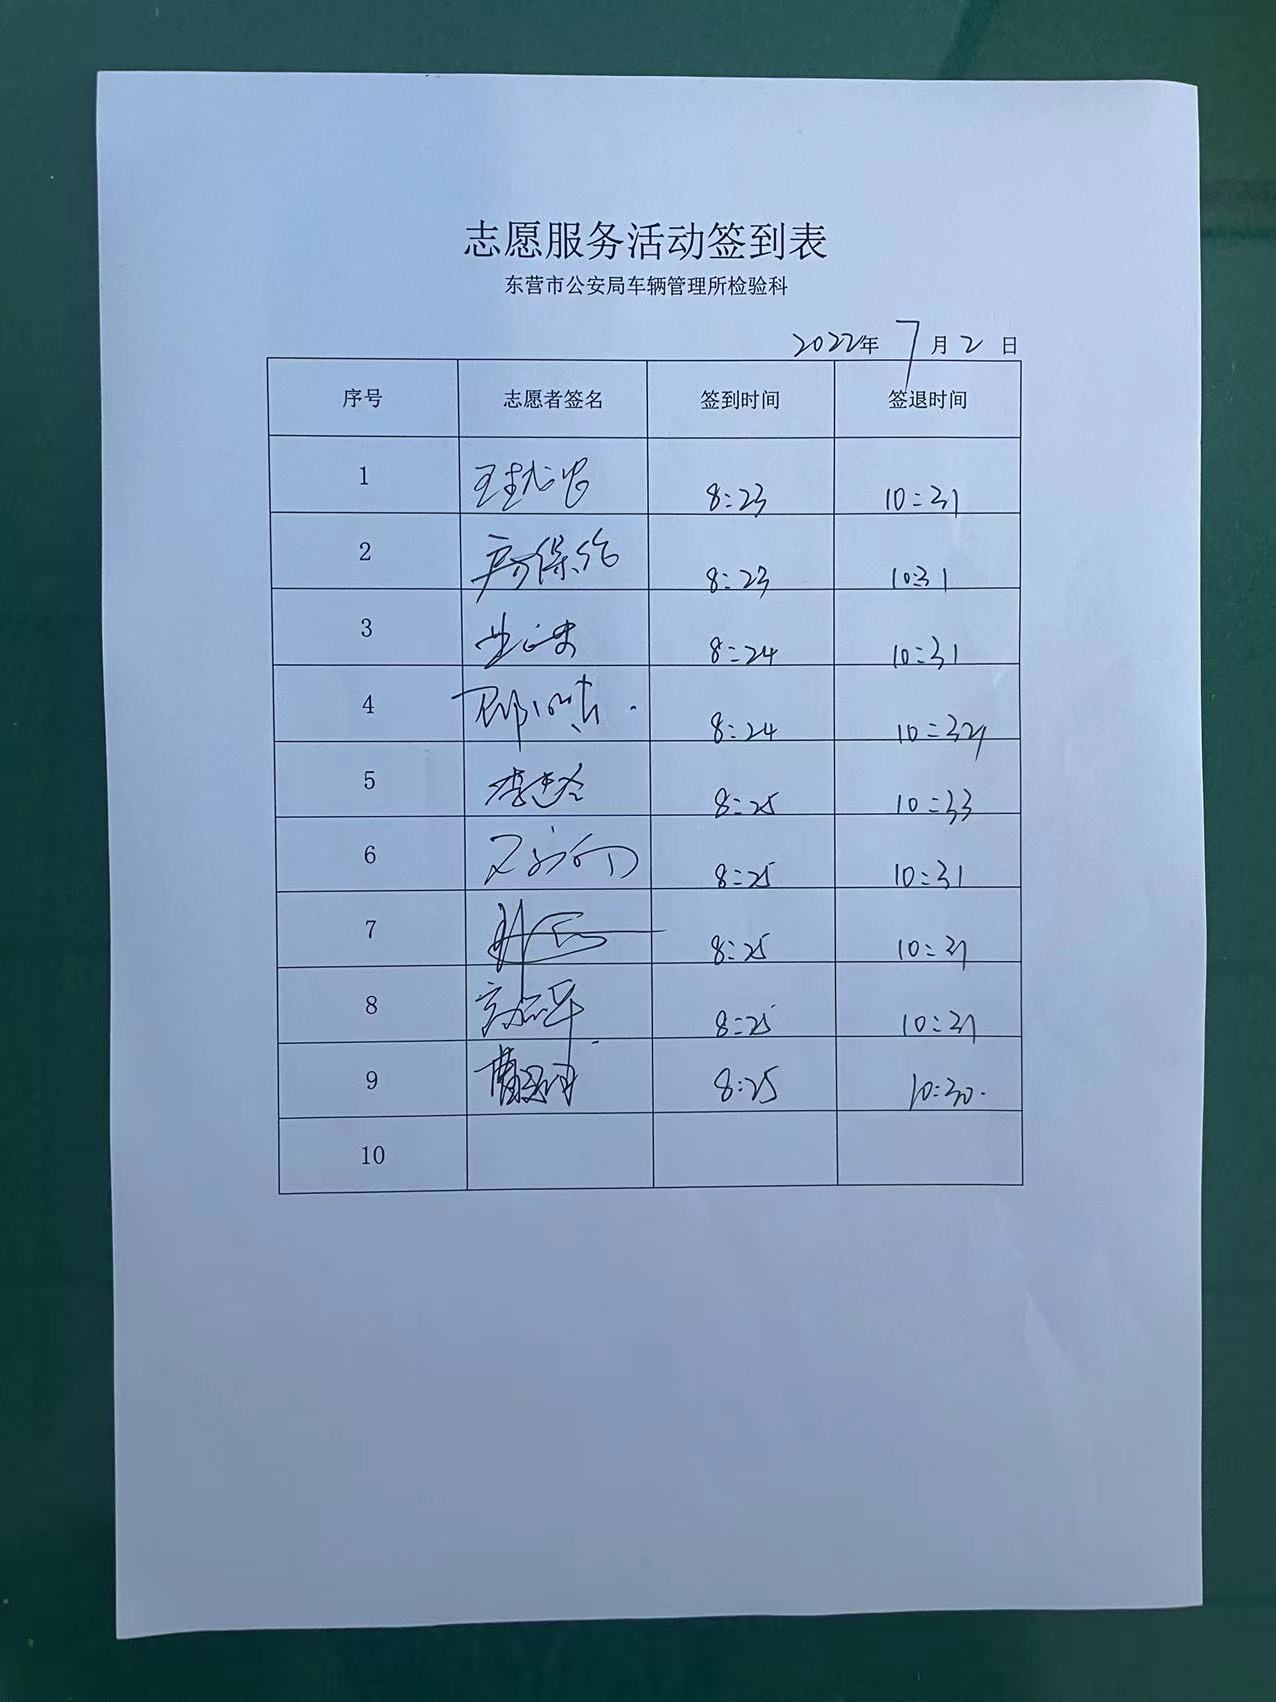 志愿服务活动签到表
东营市公安局车辆管理所检验科
2022年 7月2日
序号 志愿者签名 签到时间 签退时间
1 8:23 10:31
2 房得纶 8:23 10:31
3 8:24 10:31
4 8:24 10:32
5 8:25 10:33
6 8:25 10:31
7 8:25 10:31
8 8:25 10:31
9 8:25 10:30.
10